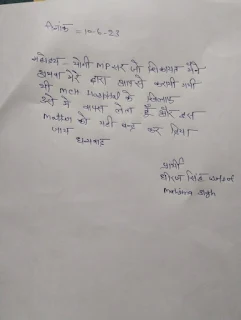 दिनांक = 10-6-23
महोदय - योगी MP सर जो शिकायत मैने
अथवा मेरे द्वारा आपसे करायी गयी
थी Hospital के खिलाफ
उसे मैं वापस लेता हूँ और इस
को यही बन्द कर दिया
जाय
धन्यवाद
प्रार्थी
धीरज सिंह
Singh